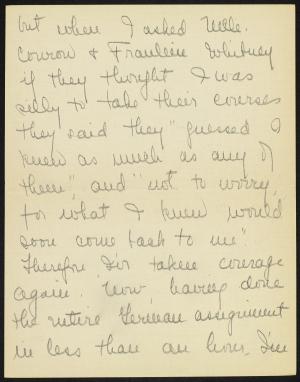 but when I asked Mlle.
Conrow & Fraulein Whitney
if they thought I was
silly to take their courses
they said they "guessed I
knew as much as any of
them", and "not to worry,
for what I knew would
soon come back to me"
Therefore I've taken courage
again. Now having done
the entire German assignment
in less than an hour, I'm